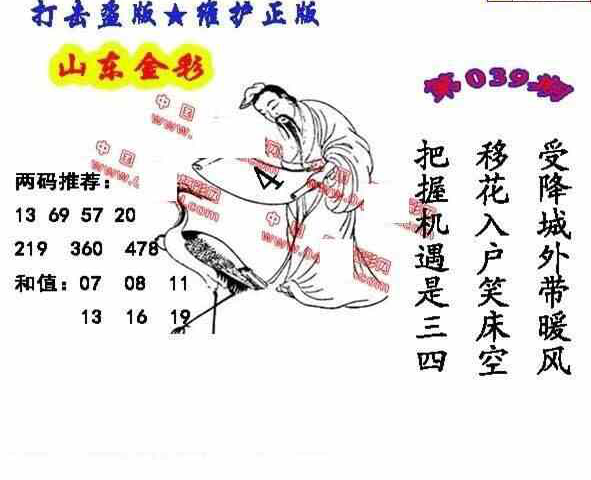 打击盗版★维护正版
山东金彩
第039期
两码推荐：
13 69 57 20
219 360 478
和值：07 08 11
13 16 19
4
受降城外带暖风
移花入户笑床空
把握机遇是三四